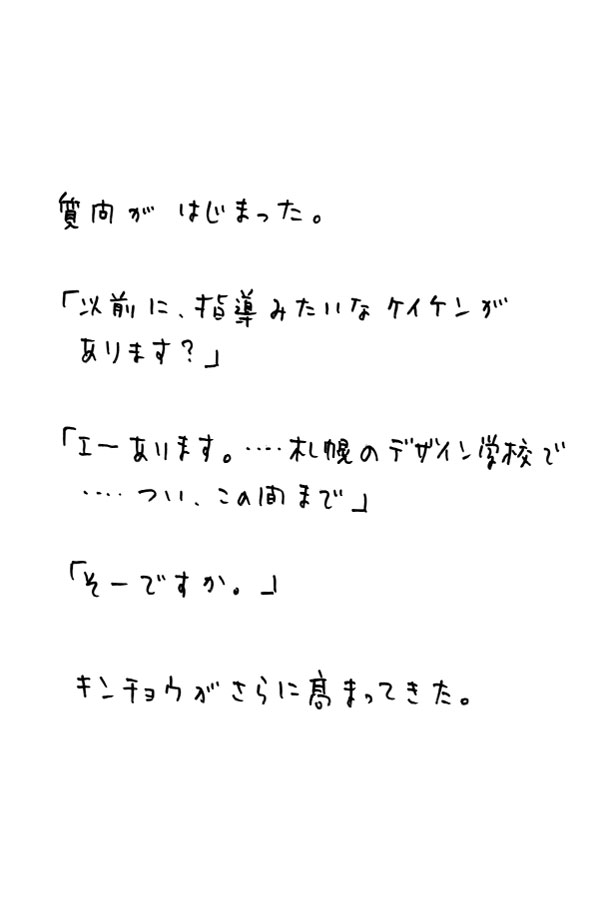 質問が はじまった。
「以前に、指導みたいなケイケンが
あります?」
「エーあります。‥‥札幌のデザイン学校で
‥‥つい、この間まで」
「そーですか。」
キンチョウがさらに高まってきた。